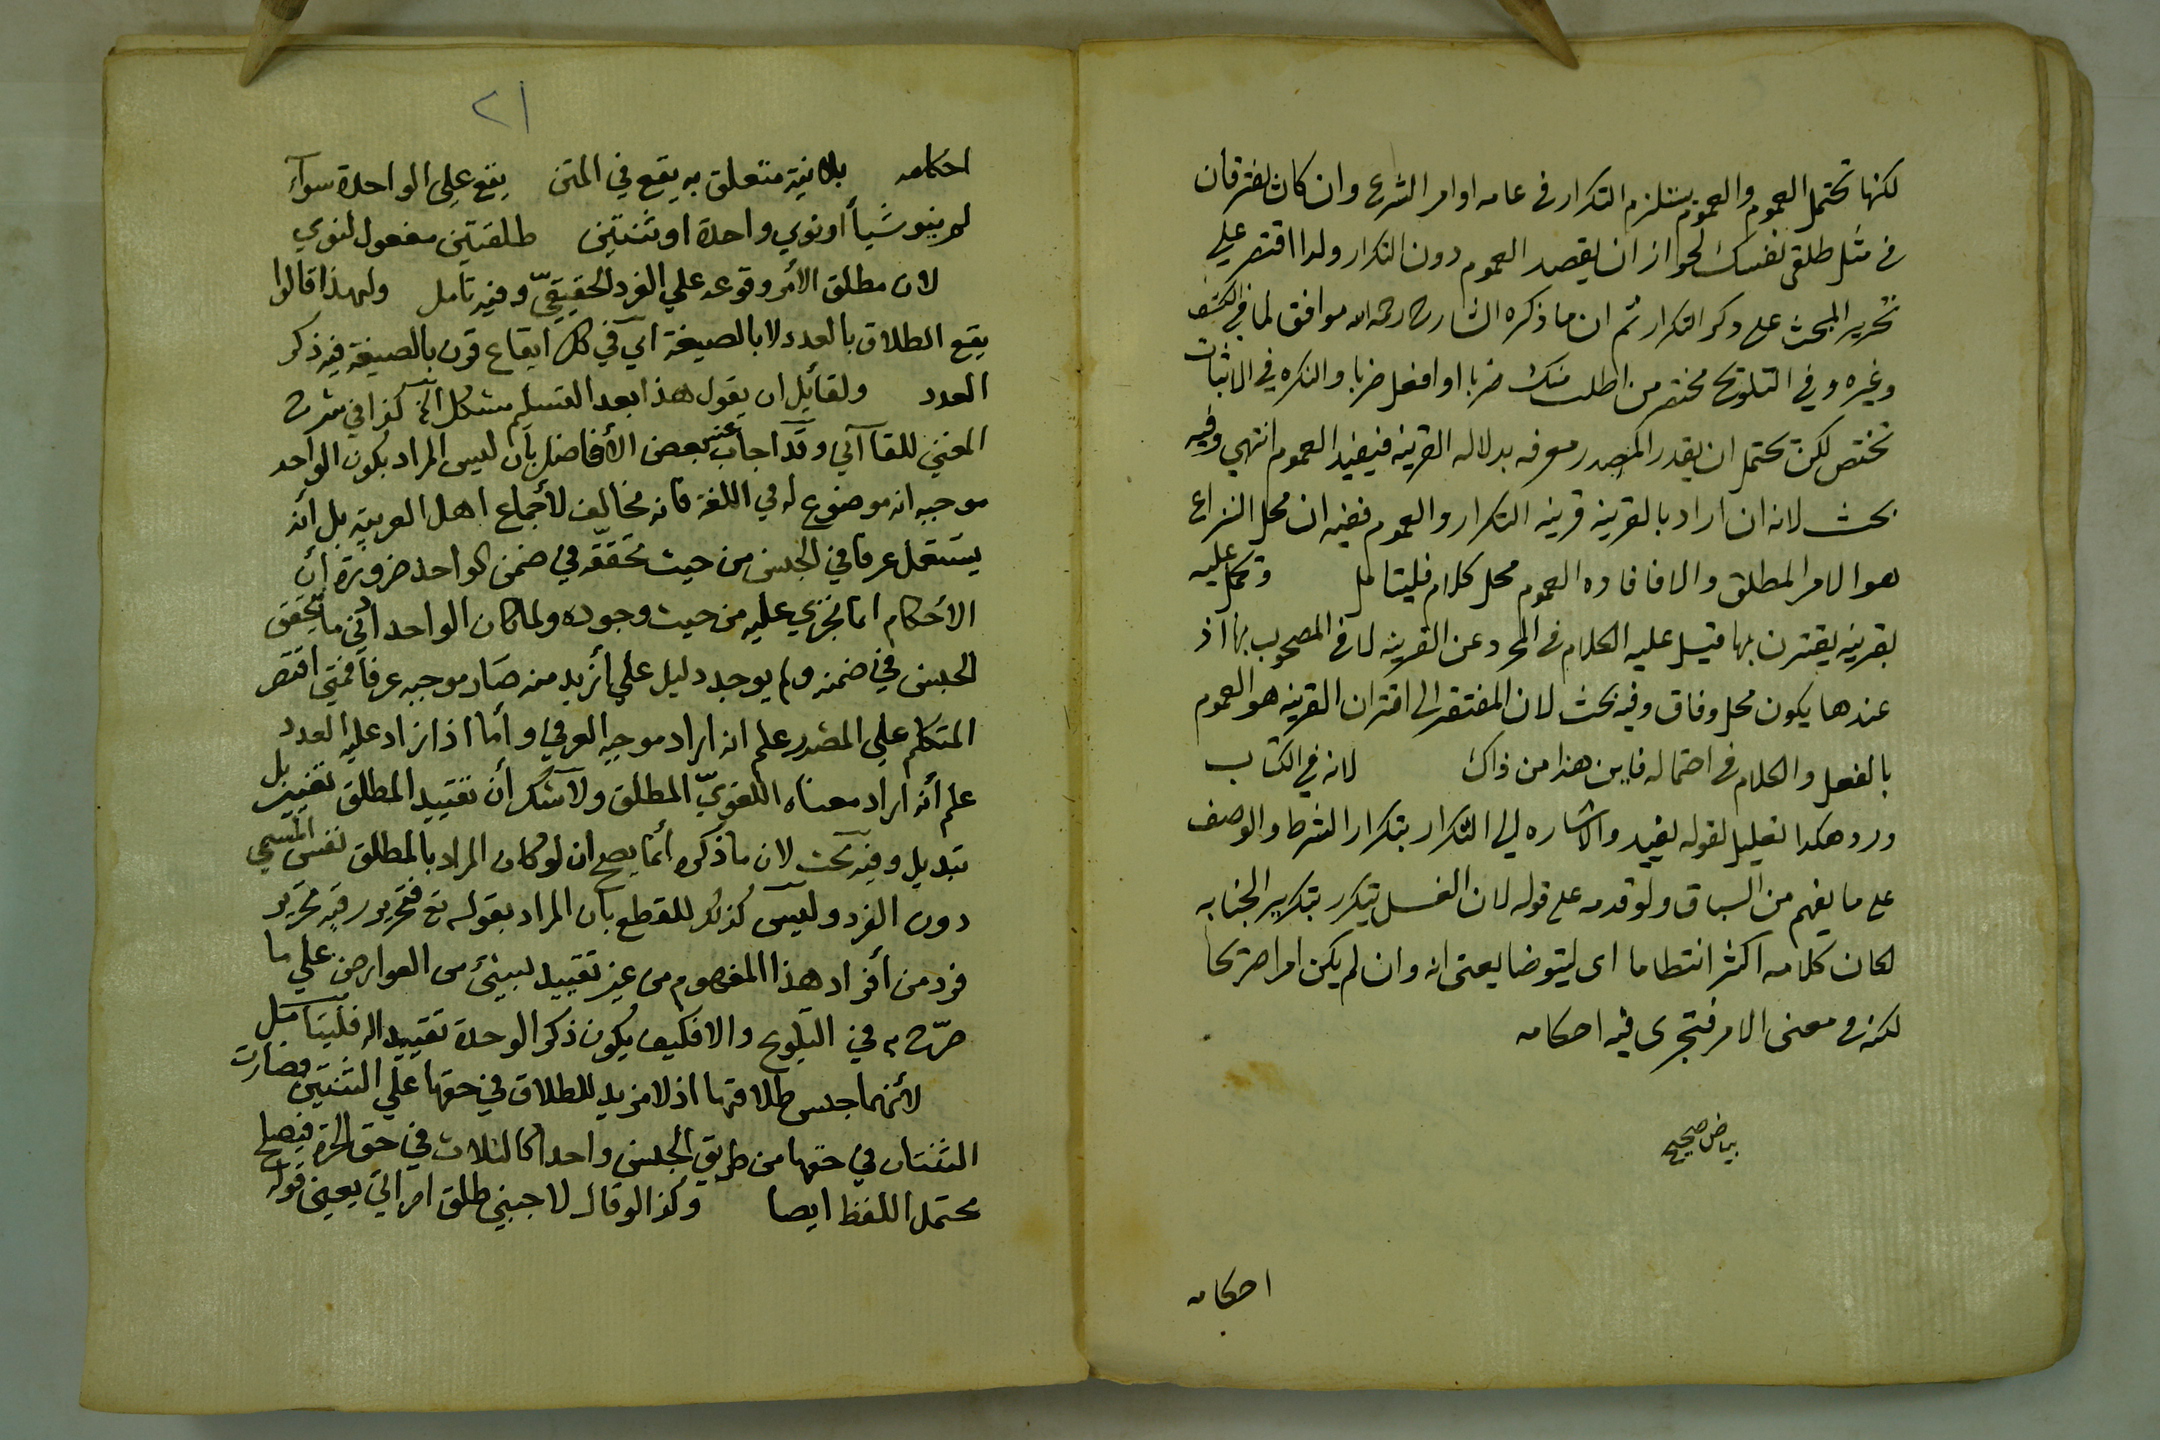 لكنها تحتمل العموم والعموم يستلزم التكرار فى عامه اوامر الشرع وان كان يفترقان
فى مثل طلقى نفسك لجواز ان يقصد العموم دون التكرار ولذا اقتصر علي
تحرير المبحث على ذكر التكرار ثم ان ما ذكره الشارح رحمه الله موافق لما في الكشف
وغيره وفي التلويح مختصر من اطلب منك ضربا او افعل ضربا والنكره في الاثبات
تختص لكن يحتمل ان يقدر المصدر معرفه بدلاله القرينه فيفيد العموم انتهي وفيه
بحث لانه ان اراد بالقرينه قرينه التكرار والعموم ففيه ان محل النزاع
هو الامر المطلق والا فافاده العموم محل كلام فليتامل وتحمل عليه
بقرينه يقترن بها قيل عليه الكلام فى المجرد عن القرينه لا فى المصحوب بها اذ
عندها يكون محل وفاق وفيه بحث لان المفتقر الى اقتران القرينه هو العموم
بالفعل والكلام فى احتماله فاين هذا من ذاك لانه في الكتاب
ورد هكذا تعليل لقوله يفيد والاشاره الى التكرار بتكرار الشرط والوصف
على ما يفهم من السباق ولو قدمه على قوله لان الغسل يتكرر بتكرير الجنابه
لكان كلامه اكثر انتظاما اى ليتوضا يعنى انه وان لم يكن امرا صريحا
لكنه فى معنى الامر فتجرى فيه احكامه
بياض صحيح
احكامه
٢١
احكامه بلا نية متعلق به يقع في المتن يقع علي الواحدة سوآء
لم ينو شيأ او نوي واحدة او ثنتين طلقتين مفعول لنوي
لان مطلق الأمر وقوعه علي الفرد الحقيقيّ وفيه تأمل ولهذا قالوا
يقع الطلاق بالعدد لا بالصيغة اي في كل ايقاع قرن بالصيغة فيه ذكر
العدد ولقائل ان يقول هذا بعد التسليم مشكل الخ كذا في شرح
المغني للقاآني وقد اجاب عنه بعض الأفاضل بأن ليس المراد بكون الواحد
موجبه انه موضوع له في اللغة فانه مخالف لأجماع اهل العربية بل أنه
يستعمل عرفا في الجنس من حيث تحققه في ضمن الواحد ضرورة أن
الأحكام انما تجري عليه من حيث وجوده ولما كان الواحد أدني ما يتحقق
الجنس في ضمنه ولم يوجد دليل علي أزيد منه صار موجبه عرفا فمتي اقتصر
المتكلم علي المصدر علم انه اراد موجبه العرفي وأما اذا زاد عليه العدد
علم أنه اراد معناه اللغويّ المطلق ولا شك أن تقييد المطلق تغيير بل
تبديل وفيه بحث لان ما ذكره أنما يصح ان لو كان المراد بالمطلق نفس المسمي
دون الفرد وليس كذلك للقطع بأن المراد بقوله تع فتحرير رقبة تحرير
فرد من أفراد هذا المفهوم من غير تقييد لشيئ من العوارض علي ما
صرّح به في التلويح والا فكيف يكون ذكر الوحدة تقييدا له فليتأمل
لأنهما جنس طلاقها اذ لا مزيد للطلاق في حقها علي الثنتين فصارت
الثنتان في حقها من طريق الجنس واحدا كالثلاث في حق الحرة فيصلح
محتمل اللفظ ايضا وكذا لو قال لاجنبي طلق امراتي يعني قوله